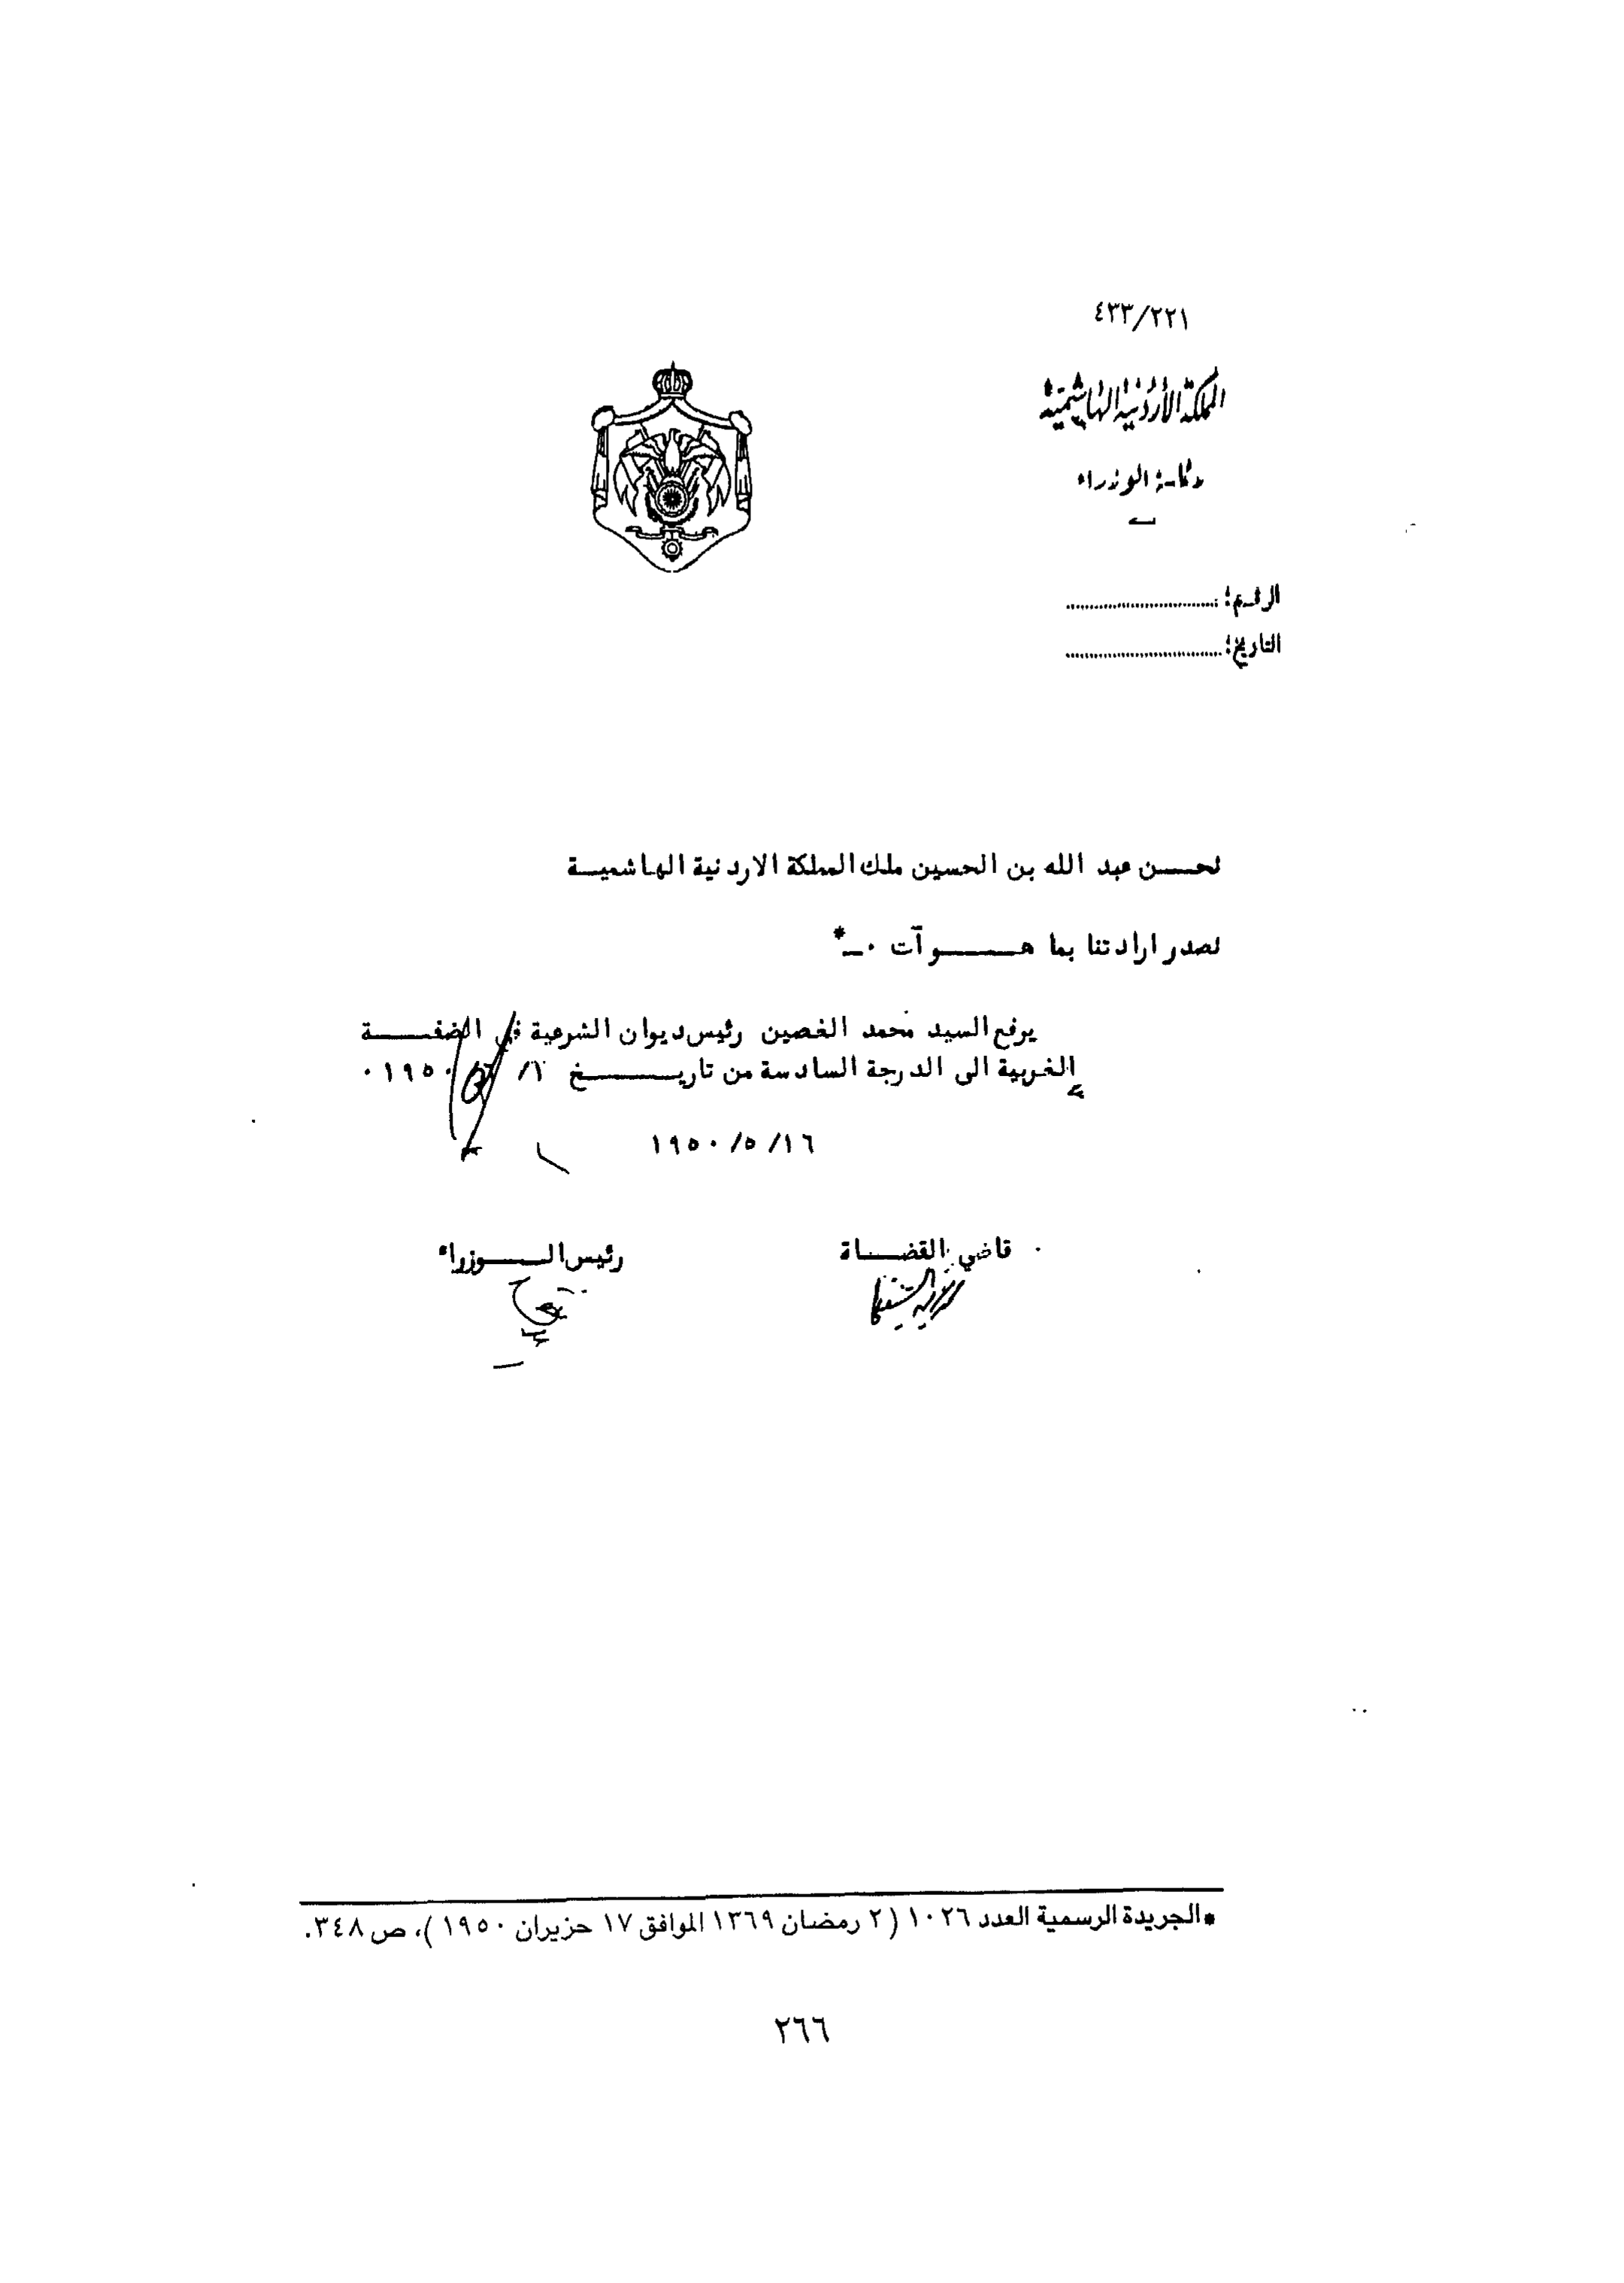 ٤٣٣/٢٢١
المملكة الأردنية الهاشمية
رئاسة الوزراء
الرقم:
التاريخ:
نحــن عبد الله بن الحسين ملك المملكة الاردنية الهاشميـة
نصدر ارادتنا بما هـــــو آت ٠ـ*
يرفع السيد محمد الغصين رئيس ديوان الشرعية في الضفــــة
الغربية الى الدرجة السادسة من تاريـــــــخ ١٩٥٠
١٩٥٠/٥/١٦
قاضي القضـــاة
رئيس الــــوزراء
*الجريدة الرسمية العدد ١٠٢٦ (٢ رمضان ١٣٦٩ الموافق ١٧ حزيران ١٩٥٠)، ص ٣٤٨.
٢٦٦